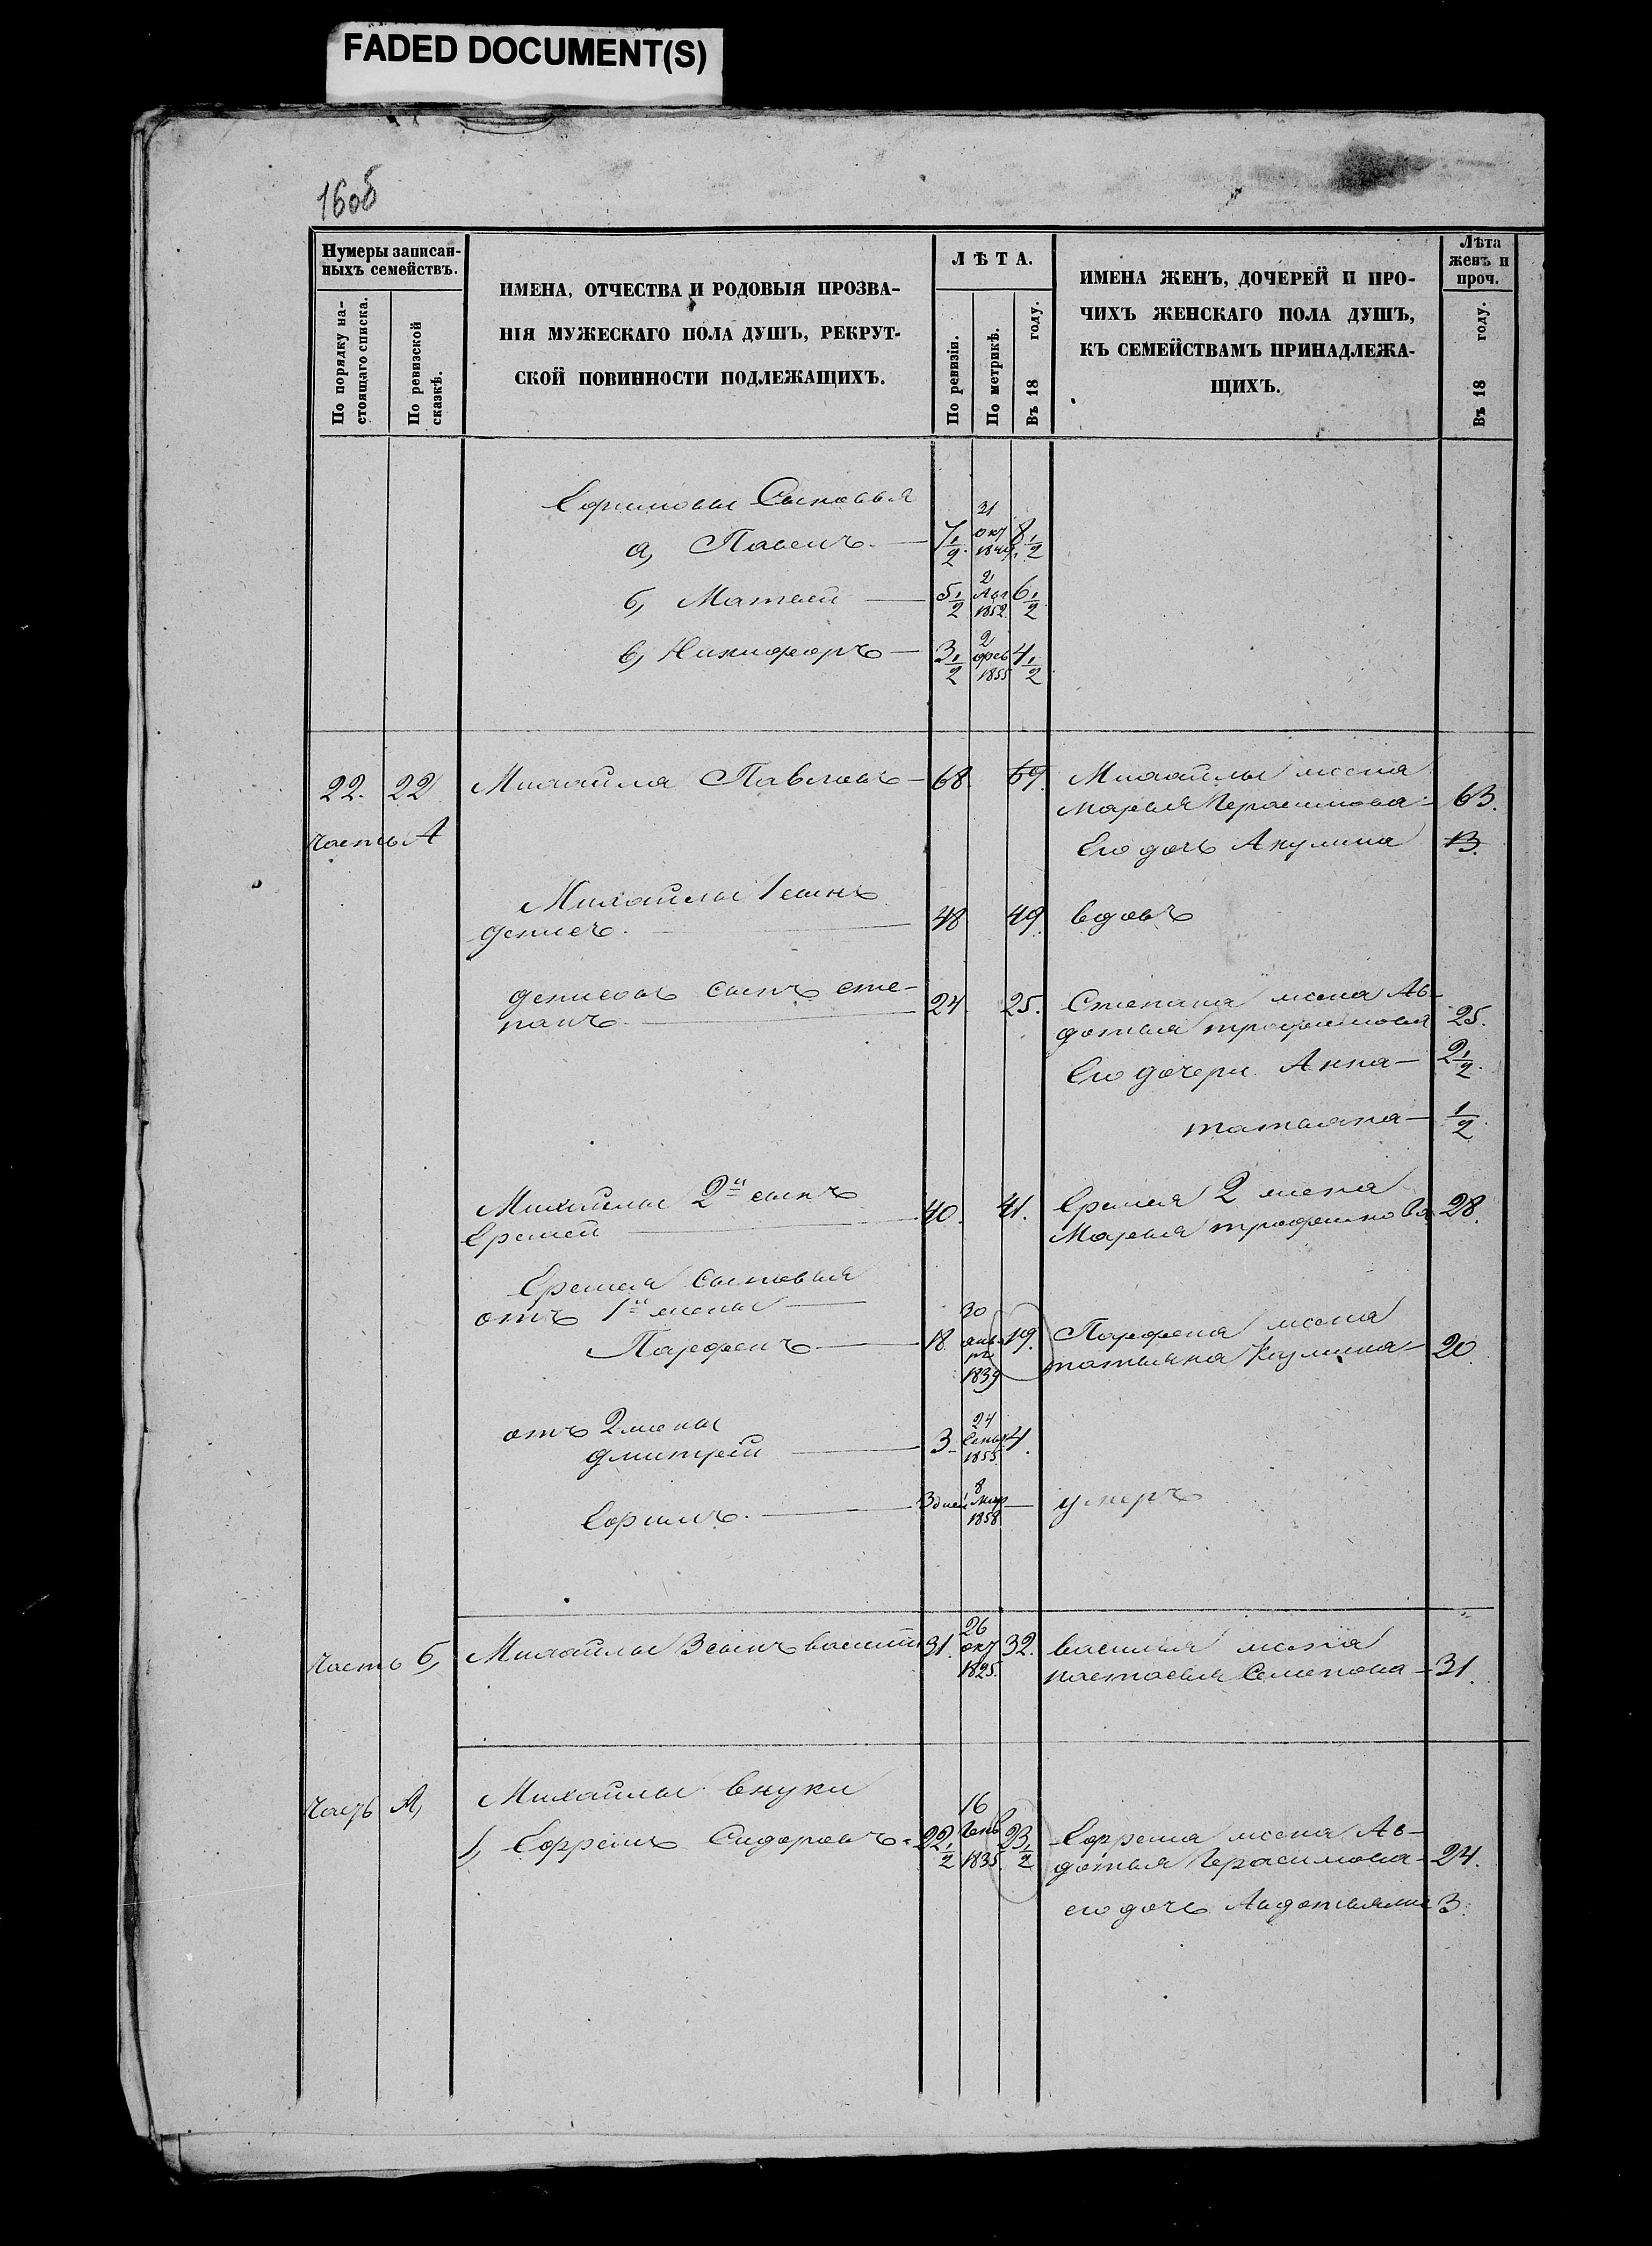 FADED DOCUMENT(S)
16об
Нумеры записан-
ныхъ семействъ.
По порядку на-
стоящаго списка.
По ревизской
сказкѣ.
ИМЕНА, ОТЧЕСТВА И РОДОВЫЯ ПРОЗВА-
НІЯ МУЖЕСКАГО ПОЛА ДУШЪ, РЕКРУТ-
СКОЙ ПОВИННОСТИ ПОДЛЕЖАЩИХЪ.
ЛѢТА.
По ревизіи.
По метрикѣ.
Въ 18 году.
ИМЕНА ЖЕНЪ, ДОЧЕРЕЙ И ПРО-
ЧИХЪ ЖЕНСКАГО ПОЛА ДУШЪ,
КЪ СЕМЕЙСТВАМЪ ПРИНАДЛЕЖА-
ЩИХЪ.
Лѣта
женъ и
проч.
Въ 18 году.
Сыновья
а, Павелъ 7 1/2 31 окт 1849 8 1/2
б, Матвей 5 1/2 2 1852 6 1/2
в, Никифоръ 3 1/2 2 фев 1855 4 1/2
22. 22 Михайла Павловъ 68 69. Михайлы жена
Марья Герасимова 63.
часть А Его дочь Акулина 13.
Михайлы 1 сынъ
Денисъ 48 49. вдовъ
Денисовъ сынъ Сте-
панъ 24. 25. Степана жена Ав-
дотья Трофимова 25.
Его дочери Анна 2 1/2
Татьяна 1/2
Михайлы 2й сынъ
Еремей 40. 41. Еремея 2 жена
Марья Трофимова 28.
Еремея сыновья
отъ 1й жены
Парфенъ 18 30 января 1839 19. Парфена жена
Татьяна Кузмина 20
отъ 2 жены
Дмитрей 3 24 Сент 1855 4.
Ефимъ 3 дней 8 Мар 1858 умеръ
часть б, Михайлы 3 сынъ Василий 31. 26 окт 1825. 32. Василья жена
Настасья Семенова 31.
часть А, Михайлы внуки
1, Ефремъ Сидоровъ 22 1/2 16 Генв 1835 23 1/2 Ефрема жена Ав-
дотья Герасимова 24.
его дочь 3.